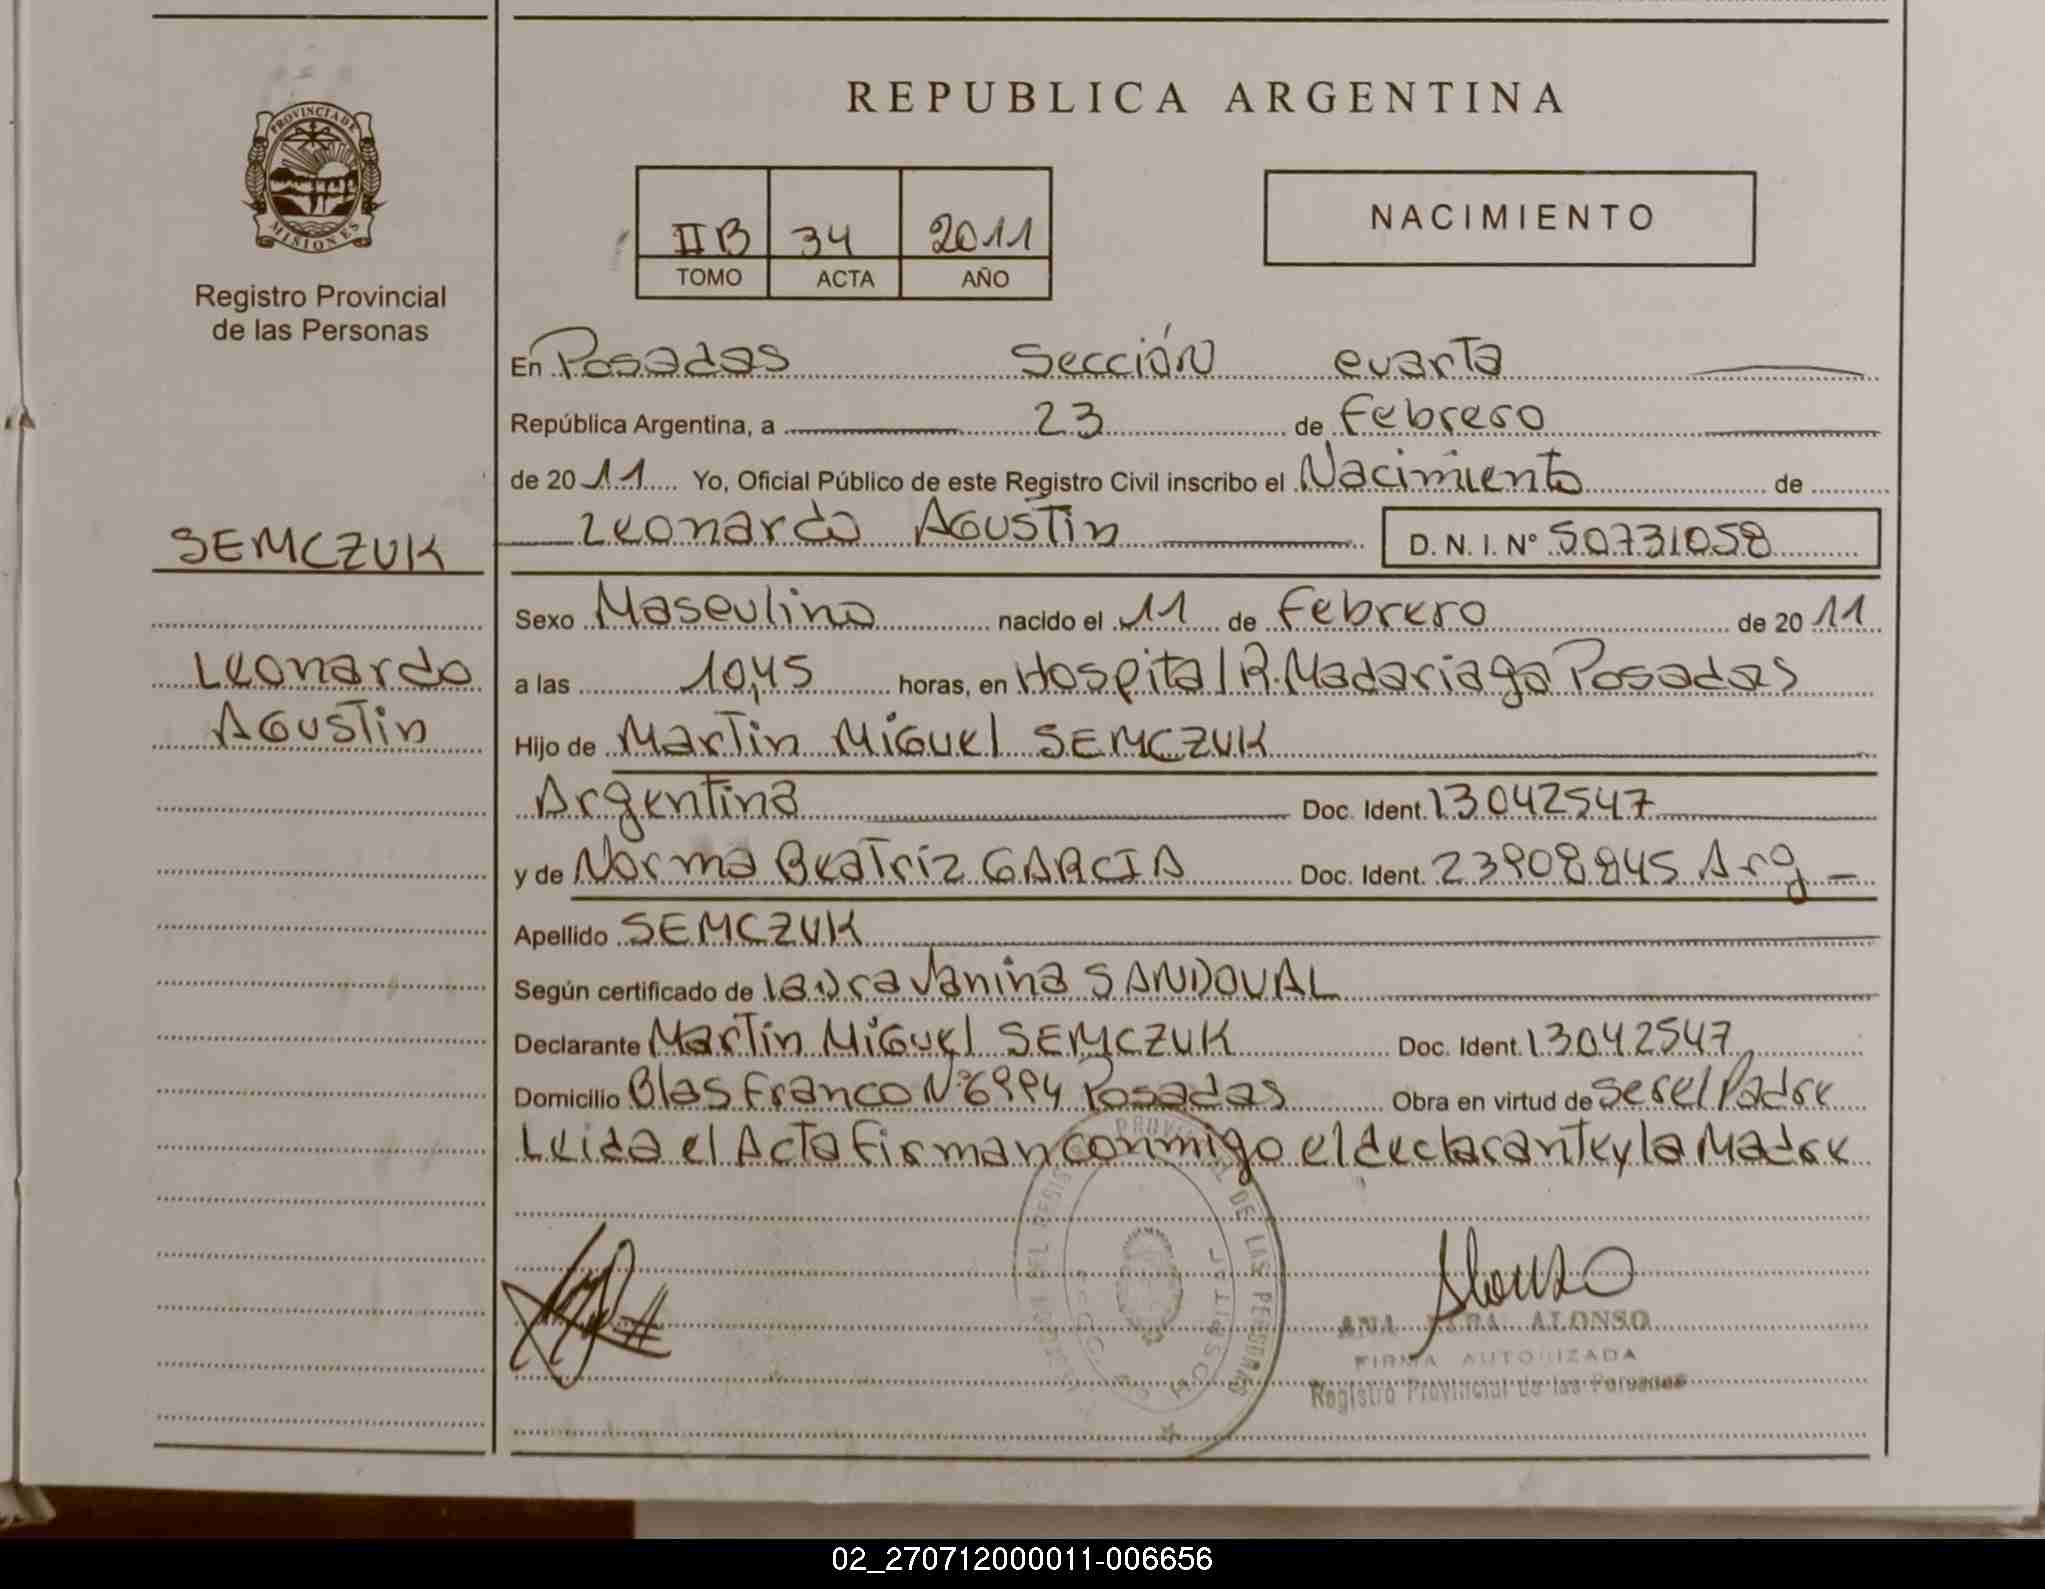 REPUBLICA ARGENTINA
PROVINCIA DE MISIONES
Registro Provincial
de las Personas
IIB 34 2011
TOMO ACTA AÑO
NACIMIENTO
En Posadas Sección cuarta
República Argentina, a 23 de Febrero
de 2011 Yo, Oficial Público de este Registro Civil inscribo el Nacimiento de
Leonardo Agustin D. N. I. Nº 50731058
SEMCZUK
Leonardo
Agustin
Sexo Masculino nacido el 11 de Febrero de 2011
a las 10,45 horas, en Hospital R. Madariaga Posadas
Hijo de Martin Miguel SEMCZUK
Argentina Doc. Ident. 13042547
y de Norma Beatriz GARCIA Doc. Ident. 23908845 Arg
Apellido SEMCZUK
Según certificado de Laura Vanina SANDOVAL
Declarante Martin Miguel SEMCZUK Doc. Ident. 13042547
Domicilio Blas Franco Nº 6994 Posadas Obra en virtud de ser el Padre
Leida el Acta firman conmigo el declarante y la Madre
Alonso
ANA ALONSO
FIRMA AUTORIZADA
Registro Provincial de las Personas
02_270712000011-006656